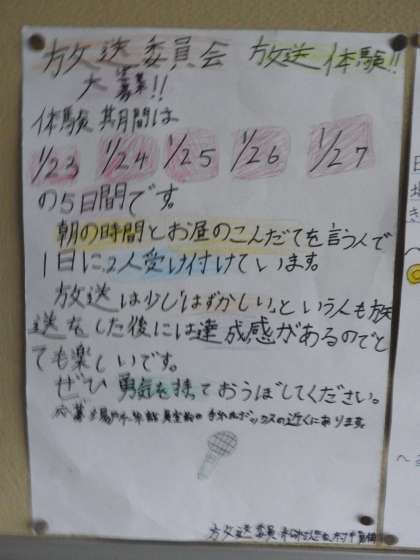 放送委員会 放送体験!!
大募集!!
体験期間は
1/23 1/24 1/25 1/26 1/27
の5日間です。
朝の時間とお昼のこんだてを言う人で
1日に2人受け付けています。
放送は少し「はずかしい。」という人も放
送をした後には達成感があるのでと
ても楽しいです。
ぜひ勇気を持っておうぼしてください。
の近くにあります。
放送委員